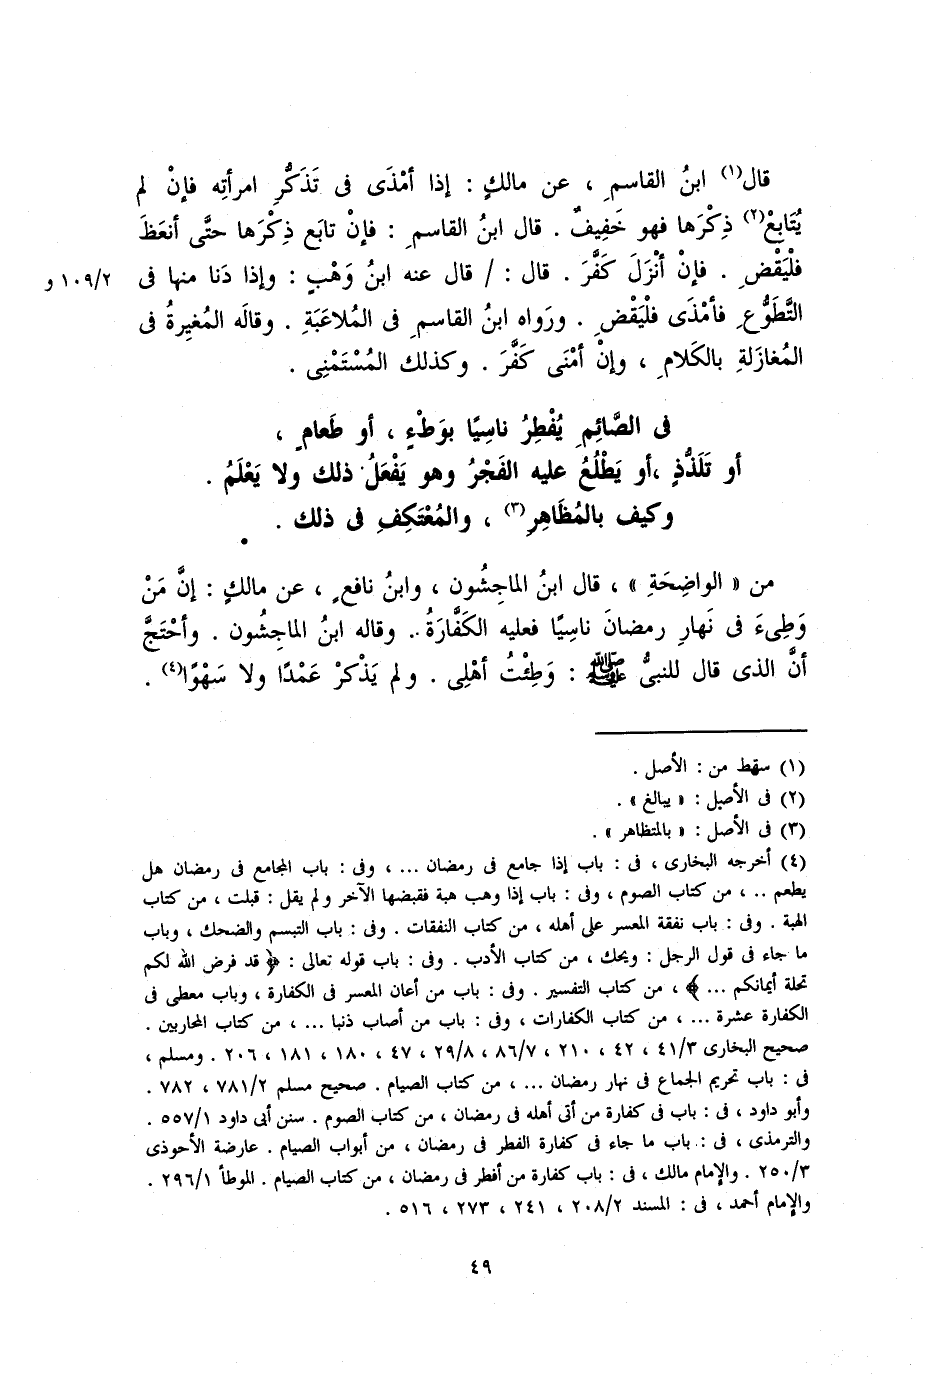 قال(١) ابنُ القاسمِ ، عن مالكٍ : إذا أمْذَى فى تَذَكُّرِ امرأتِه فإنْ لم
يُتَابِعْ(٢) ذِكْرَها فهو خَفِيفٌ . قال ابنُ القاسمِ : فإنْ تابَع ذِكْرَها حتَّى أنعَظَ
فلْيَقْضِ . فإنْ أنْزَلَ كَفَّرَ . قال : / قال عنه ابنُ وَهْبٍ : وإذا دَنا منها فى ١٠٩/٢ و
التَّطَوُّعِ فأمْذَى فلْيَقْضِ . ورَواه ابنُ القاسمِ فى المُلاعَبَةِ . وقالَه المُغِيرةُ فى
المُغازَلةِ بالكَلامِ ، وإنْ أمْنَى كَفَّرَ . وكذلك المُسْتَمْنِى .
فى الصَّائِمِ يُفْطِرُ ناسِيًا بوَطْءٍ ، أو طَعامٍ ،
أو تَلَذُّذٍ ،أو يَطْلُعُ عليه الفَجْرُ وهو يَفْعَلُ ذلك ولا يَعْلَمُ .
وكيف بالمُظَاهِرِ(٣) ، والمُعْتَكِفِ فى ذلك .
من « الواضِحَةِ » ، قال ابنُ الماجِشُون ، وابنُ نافعٍ ، عن مالكٍ : إنَّ مَنْ
وَطِىءَ فى نَهارِ رمضانَ ناسِيًا فعليه الكَفَّارَةُ . وقاله ابنُ الماجِشُون . وأحْتَجَّ
أنَّ الذى قال للنبىِّ ﷺ : وَطِئْتُ أهْلِى . ولم يَذْكرْ عَمْدًا ولا سَهْوًا(٤) .
(١) سقط من : الأصل .
(٢) فى الأصل : « يبالغ » .
(٣) فى الأصل : « بالمتظاهر » .
(٤) أخرجه البخارى ، فى : باب إذا جامع فى رمضان ... ، وفى : باب المجامع فى رمضان هل
يطعم .. ، من كتاب الصوم ، وفى : باب إذا وهب هبة فقبضها الآخر ولم يقل : قبلت ، من كتاب
الهبة . وفى : باب نفقة المعسر على أهله ، من كتاب النفقات . وفى : باب التبسم والضحك ، وباب
ما جاء فى قول الرجل : ويحك ، من كتاب الأدب . وفى : باب قوله تعالى : ﴿ قد فرض الله لكم
تحلة أيمانكم ... ﴾ ، من كتاب التفسير . وفى : باب من أعان المعسر فى الكفارة ، وباب معطى فى
الكفارة عشرة ... ، من كتاب الكفارات ، وفى : باب من أصاب ذنبا ... ، من كتاب المحاربين .
صحيح البخارى ٤١/٣ ، ٤٢ ، ٢١٠ ، ٨٦/٧ ، ٢٩/٨ ، ٤٧ ، ١٨٠ ، ١٨١ ، ٢٠٦ . ومسلم ،
فى : باب تحريم الجماع فى نهار رمضان ... ، من كتاب الصيام . صحيح مسلم ٧٨١/٢ ، ٧٨٢ .
وأبو داود ، فى : باب فى كفارة من أتى أهله فى رمضان ، من كتاب الصوم . سنن أبى داود ٥٥٧/١ .
والترمذى ، فى : باب ما جاء فى كفارة الفطر فى رمضان ، من أبواب الصيام . عارضة الأحوذى
٢٥٠/٣ . والإمام مالك ، فى : باب كفارة من أفطر فى رمضان ، من كتاب الصيام . الموطأ ٢٩٦/١ .
والإمام أحمد ، فى : المسند ٢٠٨/٢ ، ٢٤١ ، ٢٧٣ ، ٥١٦ .
٤٩